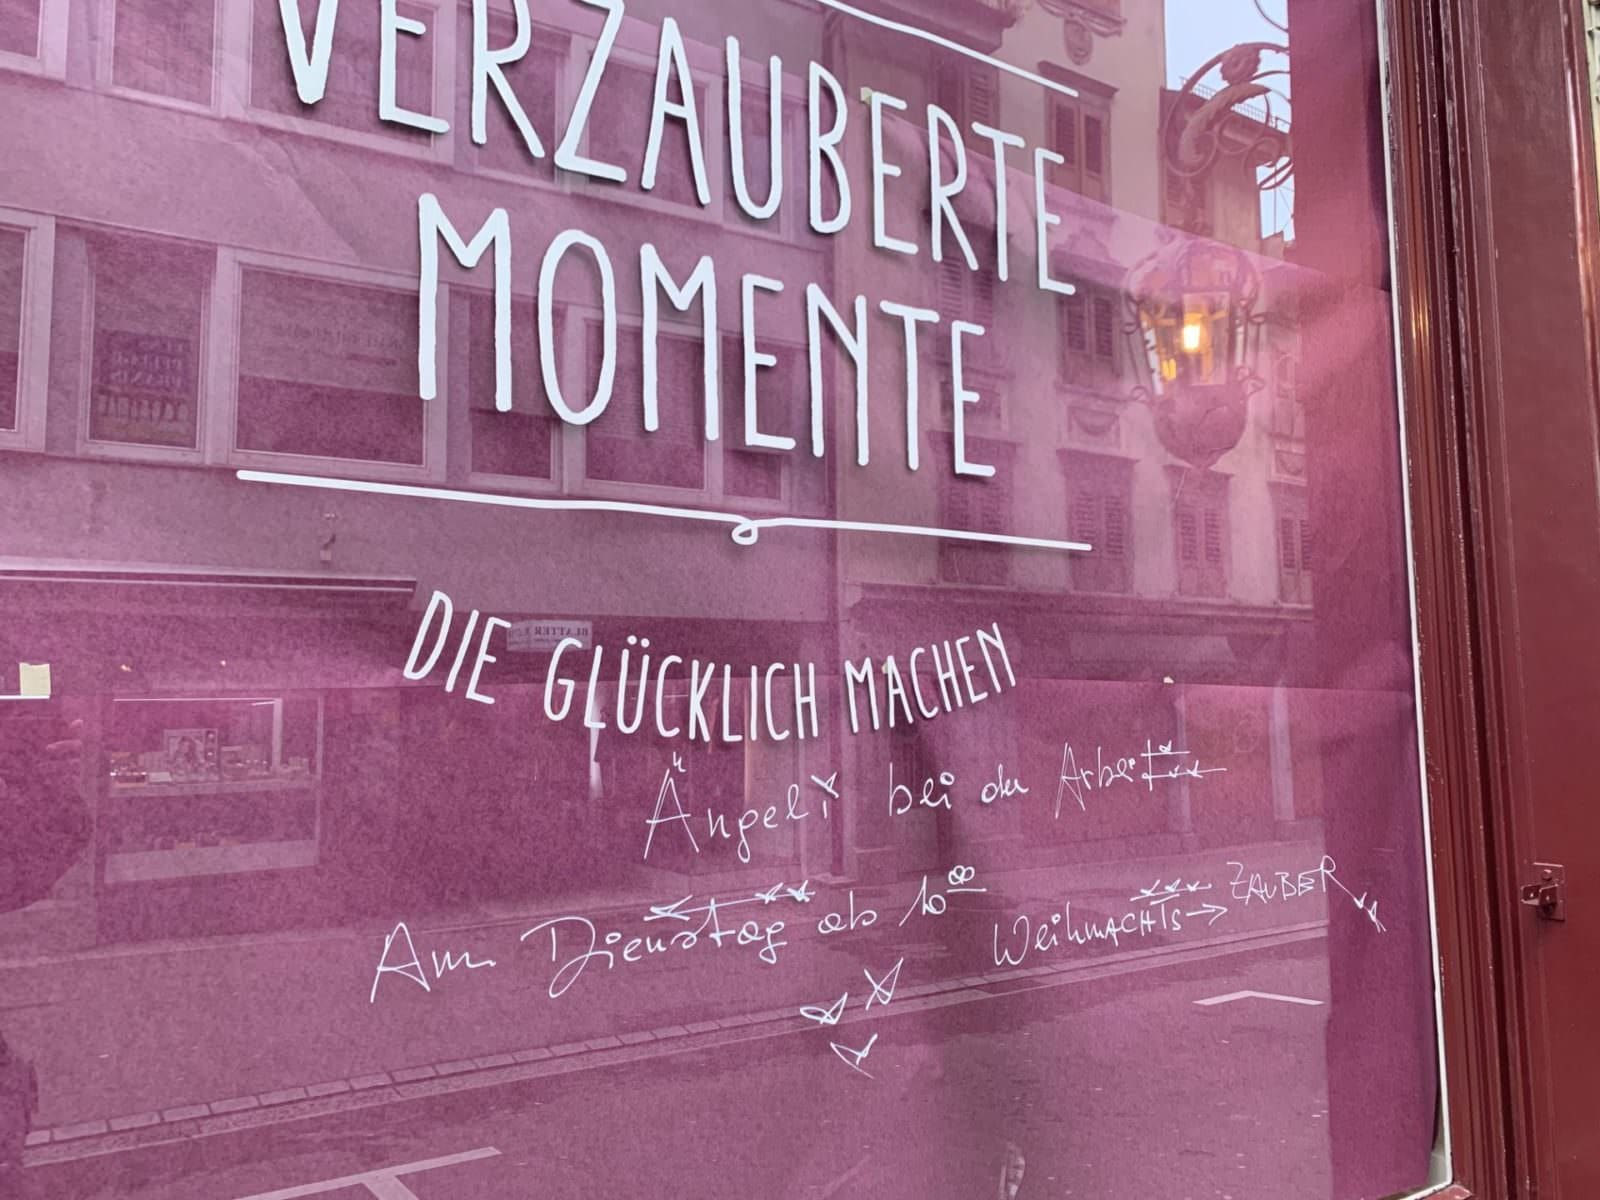 VERZAUBERTE
MOMENTE
DIE GLÜCKLICH MACHEN
Ängeli bei der Arbeit
Am Dienstag ab 10⁰⁰
Weihnachts → ZAUBER